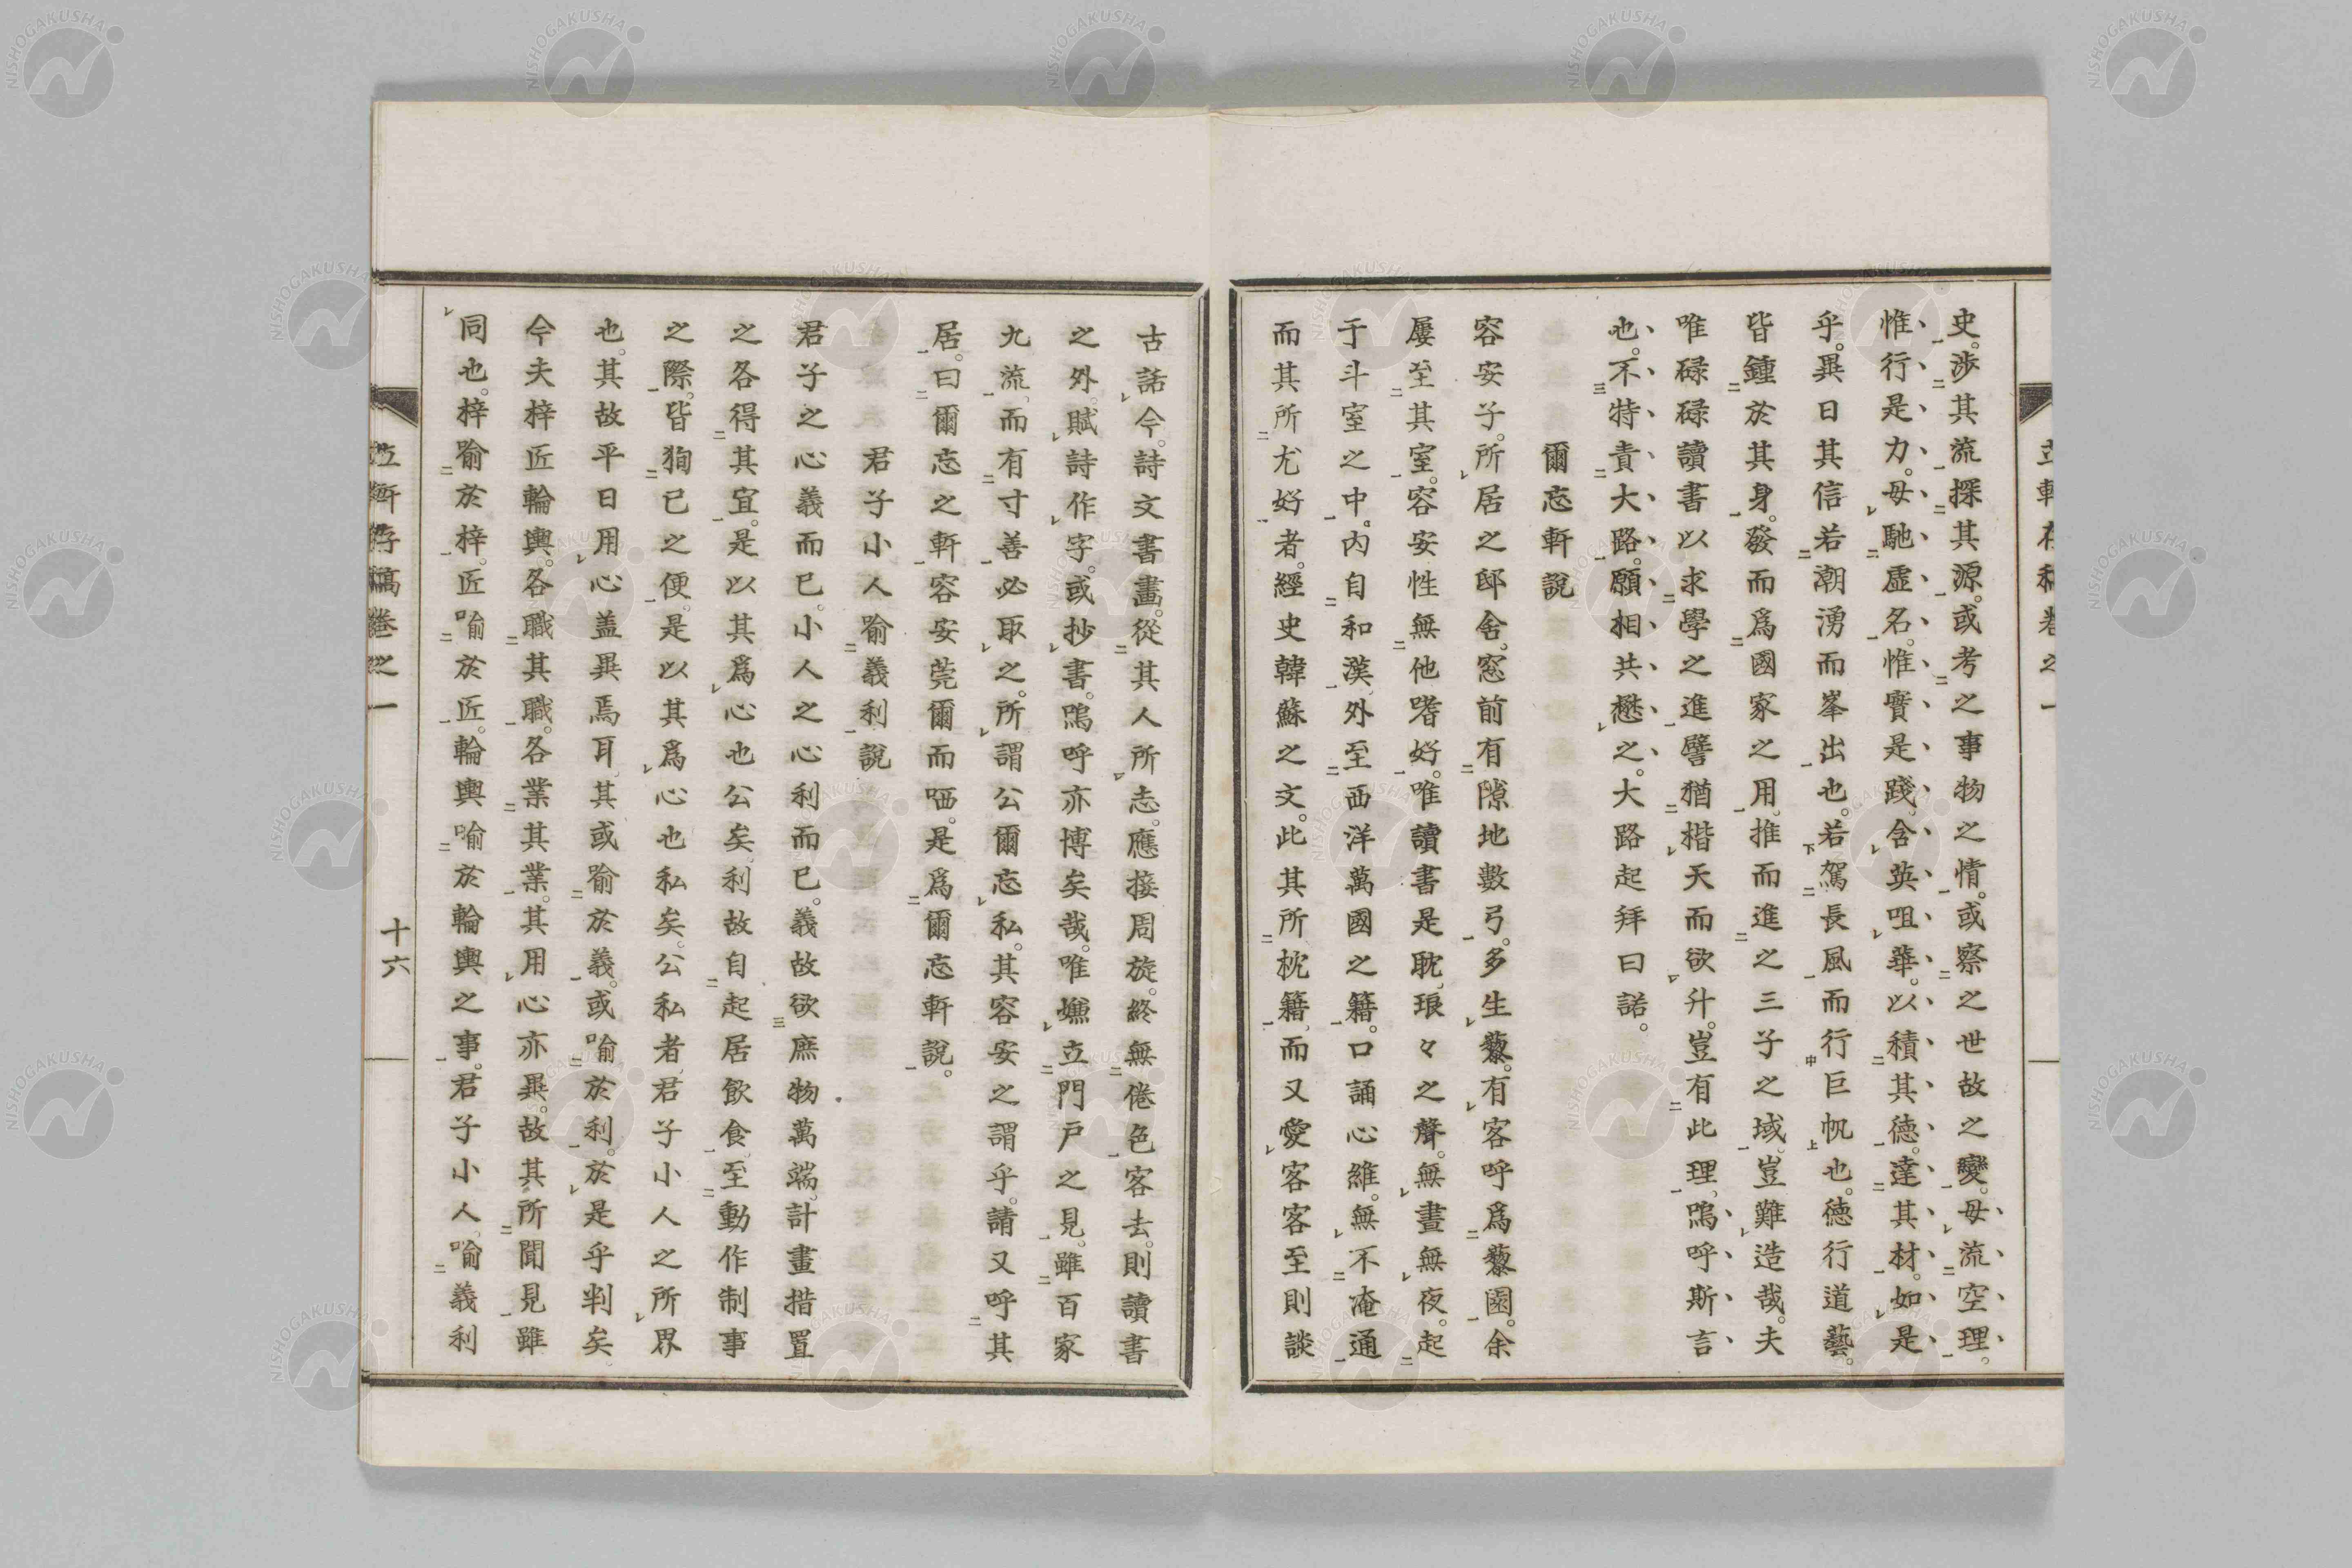 史。涉其流探其源。或考之事物之情。或察之世故之變。毋流空理。
惟行是力。毋馳虛名。惟實是踐、含英咀華。以積其德。達其材。如是
乎。異日其信若潮湧而峯出也。若駕長風而行巨帆也。德行道藝。
皆鍾於其身。發而爲國家之用。推而進之三子之域、豈難造哉。夫
唯碌碌讀書以求學之進譬猶楷天而欲升。豈有此理、嗚呼斯言
也。不特責大路。願相共懋之。大路起拜曰諾。
爾忘軒說
容安子。所居之邸舍。窓前有隙地數弓。多生藜。有客呼爲藜園。余
屢至其室。容安性無他嗜好。唯讀書是耽、琅々之聲。無晝無夜。起
于斗室之中。內自和漢、外至西洋萬國之籍。口誦心維。無不淹通
而其所尤好者。經史韓蘇之文。此其所枕籍、而又愛客客至則談
古話今。詩文書畵。從其人所志。應接周旋。終無倦色客去。則讀書
之外。賦詩作字。或抄書。嗚呼亦博矣哉。唯嫌立門戶之見。雖百家
九流、而有寸善必取之。所謂公爾忘私。其容安之謂乎。請又呼其
居。曰爾忘之軒、容安莞爾而哂。是爲爾忘軒說。
君子小人喻義利說
君子之心義而已。小人之心利而已。義故欲庶物萬端。計畫措置
之各得其宜。是以其爲心也公矣、利故自起居飲食。至動作制事
之際。皆狥已之便。是以其爲心也私矣。公私者、君子小人之所界
也。其故平日用心盖異焉耳、其或喻於義。或喻於利。於是乎判矣。
今夫梓匠輪輿。各職其職。各業其業。其用心亦異。故其所聞見雖
同也。梓喻於梓。匠喻於匠。輪輿喻於輪輿之事。君子小人、喻義利
立軒存稿卷之一
十六
立軒存稿卷之一
NISHOGAKUSHA